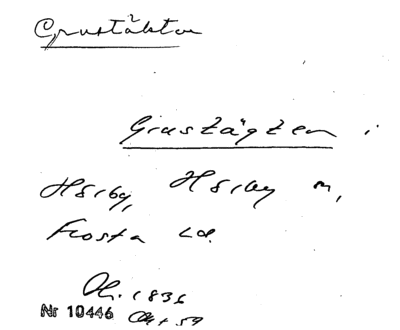 Grustäkten
Grustägten i
Hörby, Hörby m,
Frosta Ld.
Nr 10446